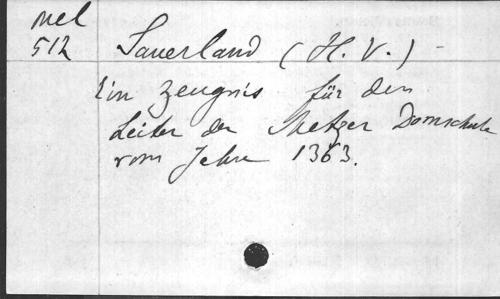 Mel
512 Sauerland (H. V.) -
Ein Zeugnis für den
Leiter der Metzer Domschule
vom Jahre 1363.